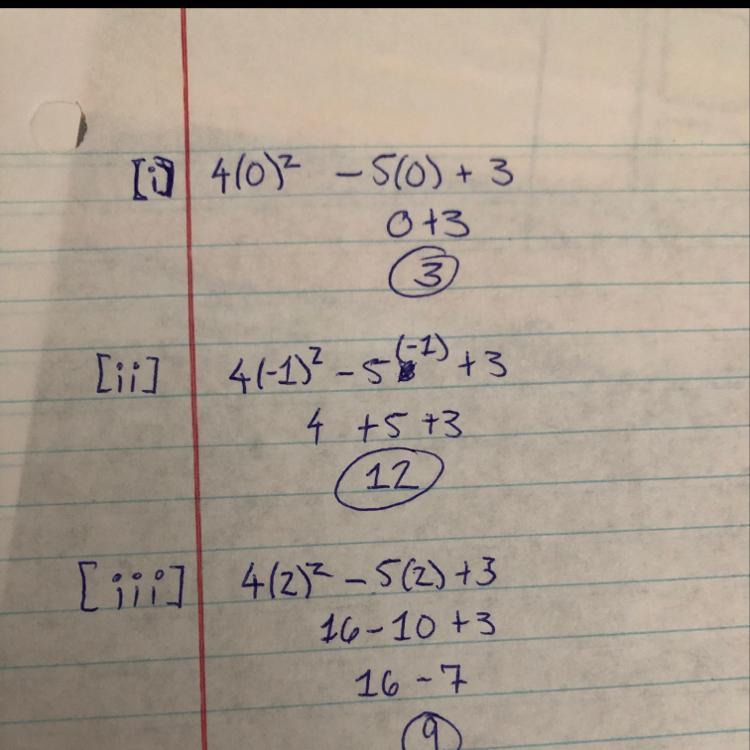 [i] 4(0)² - 5(0) + 3
0 + 3
3
[ii] 4(-1)² - 5(-1) + 3
4 + 5 + 3
12
[iii] 4(2)² - 5(2) + 3
16 - 10 + 3
16 - 7
9